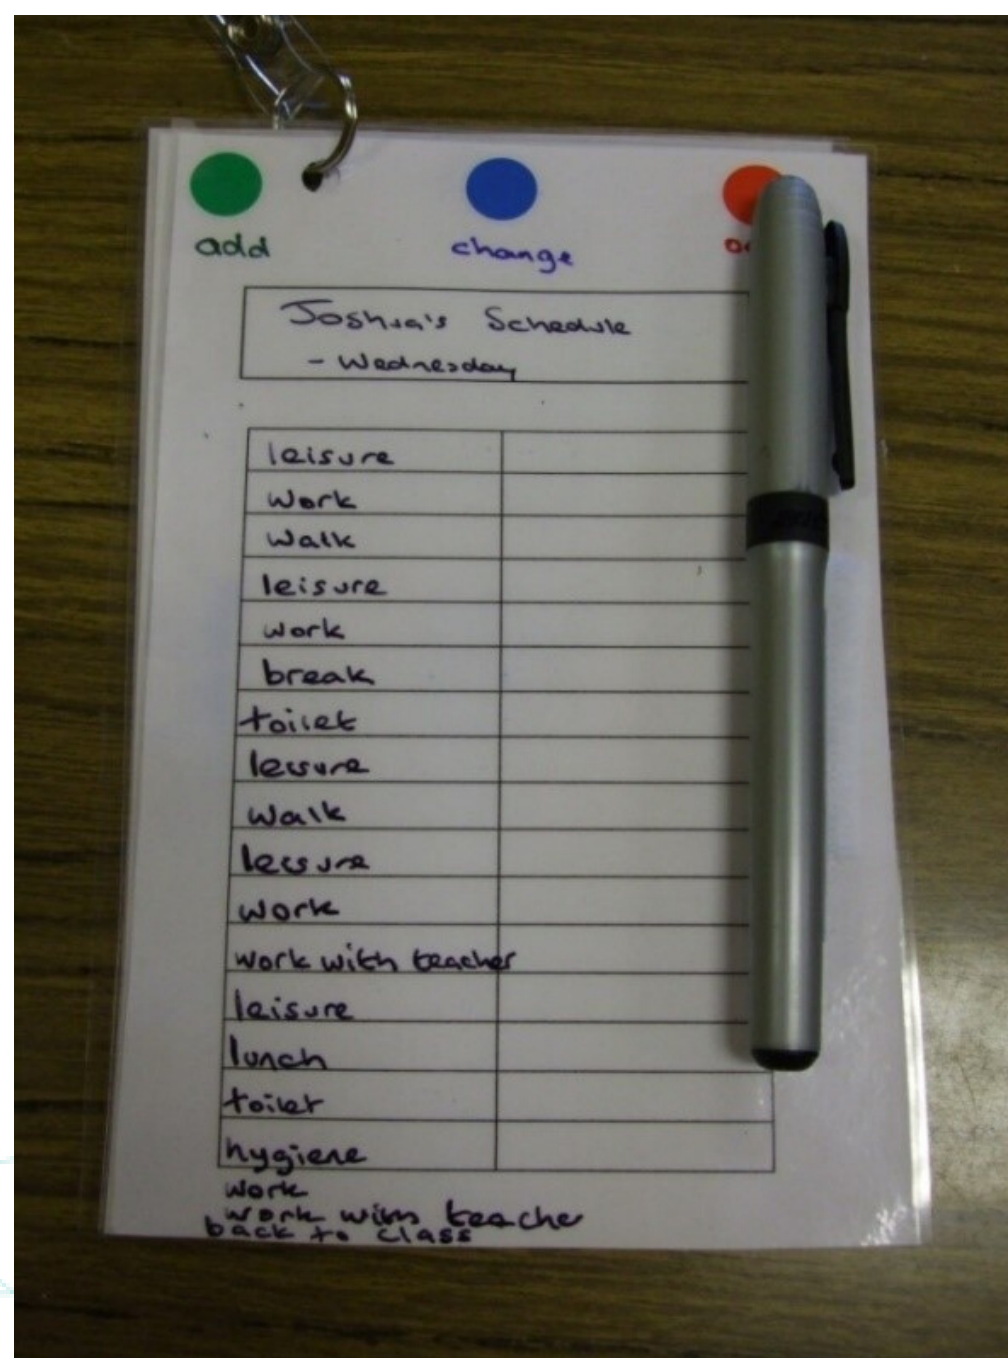 add change
Joshua's Schedule
- Wednesday
leisure
Work
Walk
leisure
work
break
toilet
leisure
Walk
leisure
work
work with teacher
leisure
lunch
toilet
hygiene
work
work with teacher
back to class